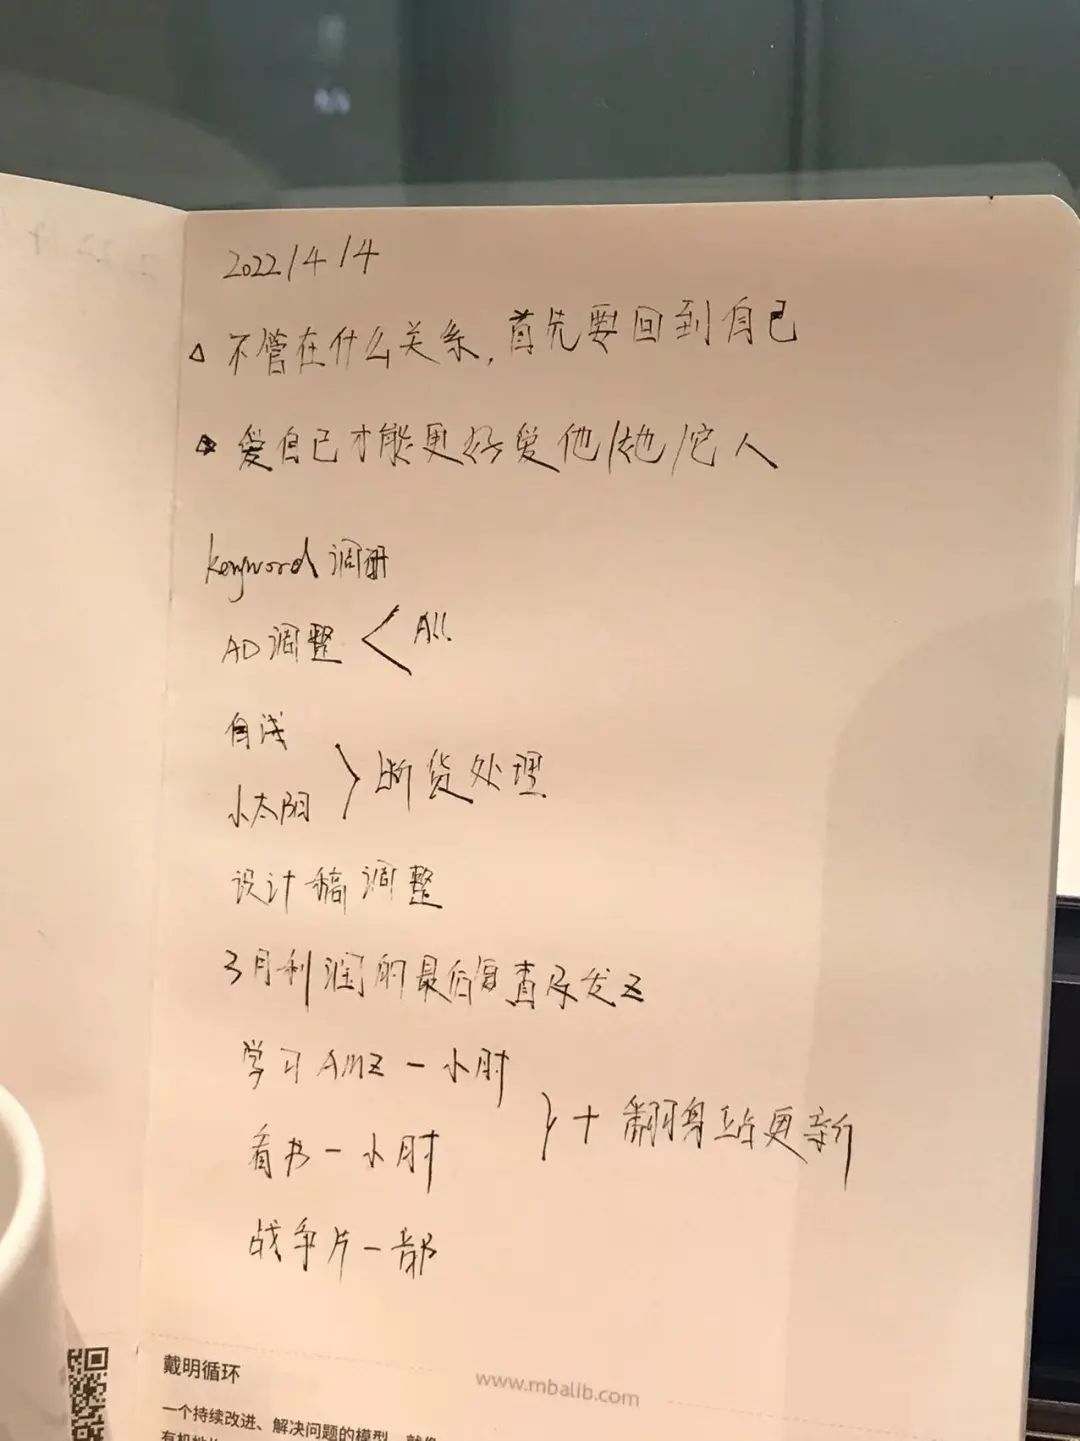 2022/4/4
△ 不管在什么关系,首先要回到自己
△ 爱自己才能更好爱他/她/它人
keyword 调
AD 调整 < All
自浅
小太阳
} 断货处理
设计稿调整
3月利润的最后复查及发
学习 AMZ 一小时
看书一小时
} + 翻身站更新
战争片一部
戴明循环
www.mbalib.com
一个持续改进、解决问题的模型,就像